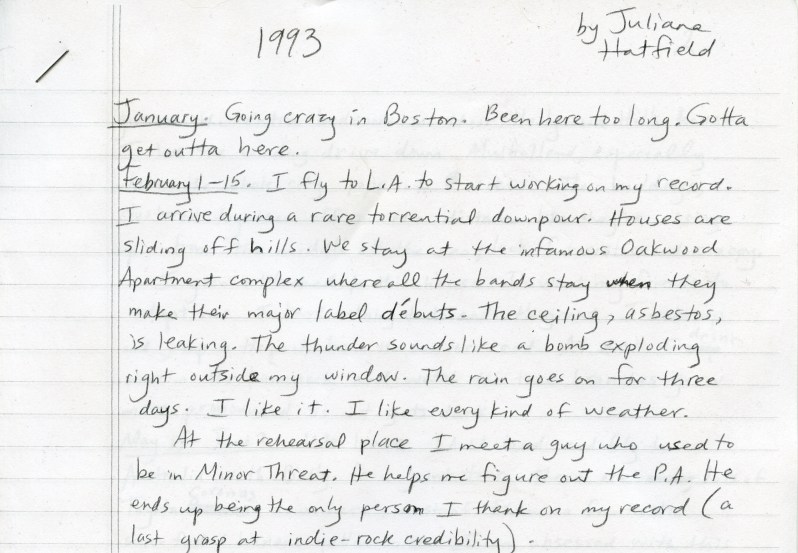 1993
by Juliana
Hatfield
January. Going crazy in Boston. Been here too long. Gotta
get outta here.
February 1-15. I fly to L.A. to start working on my record.
I arrive during a rare torrential downpour. Houses are
sliding off hills. We stay at the infamous Oakwood
Apartment complex where all the bands stay when they
make their major label débuts. The ceiling, asbestos,
is leaking. The thunder sounds like a bomb exploding
right outside my window. The rain goes on for three
days. I like it. I like every kind of weather.
At the rehearsal place I meet a guy who used to
be in Minor Threat. He helps me figure out the P.A. He
ends up being the only person I thank on my record (a
last grasp at indie-rock credibility).